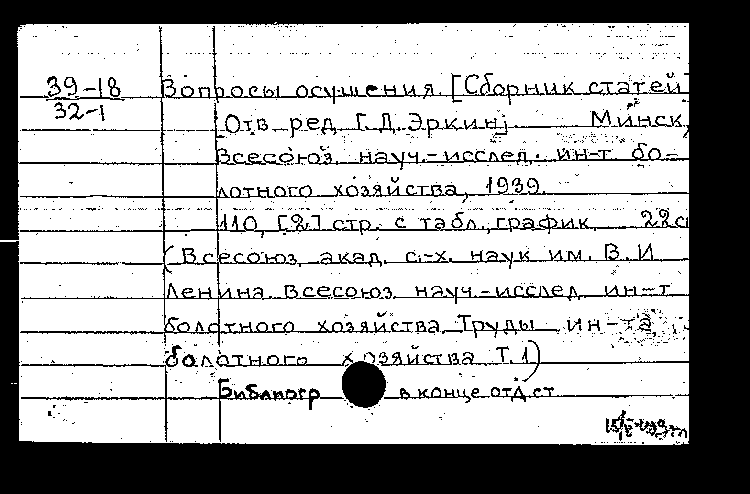 39-18
32-1
Вопросы осушения. [Сборник статей]
[Отв. ред. Г. Д. Эркин]. Минск,
Всесоюз. науч.-исслед. ин-т бо-
лотного хозяйства, 1939.
110, [2] стр. с табл., график. 22с
(Всесоюз. акад. с.-х. наук им. В. И.
Ленина. Всесоюз. науч.-исслед. ин-т
болотного хозяйства. Труды ин-та
болотного хозяйства Т. 1)
Библиогр. в конце отд. ст.